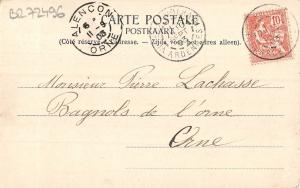 B272496
CARTE POSTALE
POSTKAART
(Côté réservé à l'adresse. — Zijde voor het adres alleen).
ALENÇON
ORNE
10
Monsieur Pierre Lachasse
Bagnols de l'orne
Orne